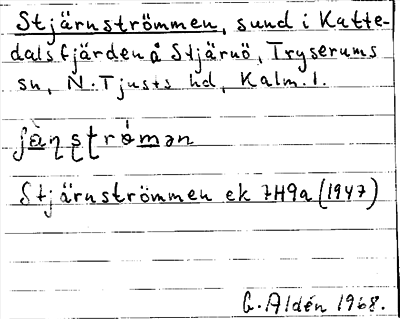 Stjärnströmmen, sund i Katte-
dalsfjärden å Stjärnö, Tryserums
sn, N. Tjusts hd, Kalm. l.
Stjärnströmmen ek 7H9a (1947)
G. Aldén 1968.